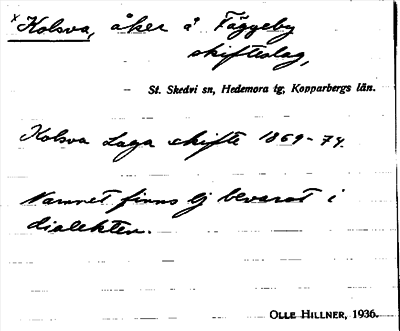 x Kolsva, åker å Fäggeby
skifteslag,
St. Skedvi sn, Hedemora tg, Kopparbergs län.
Kolsva Laga skifte 1869-74.
Namnet finns ej bevarat i
dialekten.
OLLE HILLNER, 1936.